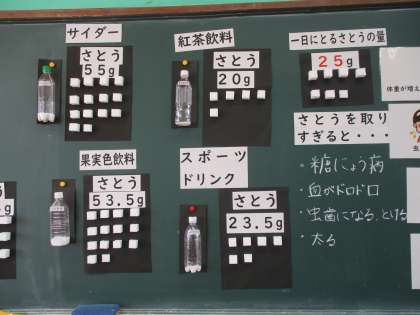 サイダー
さとう
55g
紅茶飲料
さとう
20g
一日にとるさとうの量
25g
体重が増え
さとうを取り
すぎると・・・
虫
果実色飲料
さとう
53.5g
スポーツ
ドリンク
さとう
23.5g
・糖にょう病
・血がドロドロ
・虫歯になる、とける
・太る
う
g